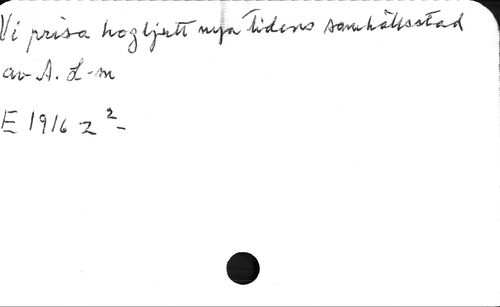 Vi prisa högljutt nya tidens samhällsstad
av A. L-m
E 1916 z²-